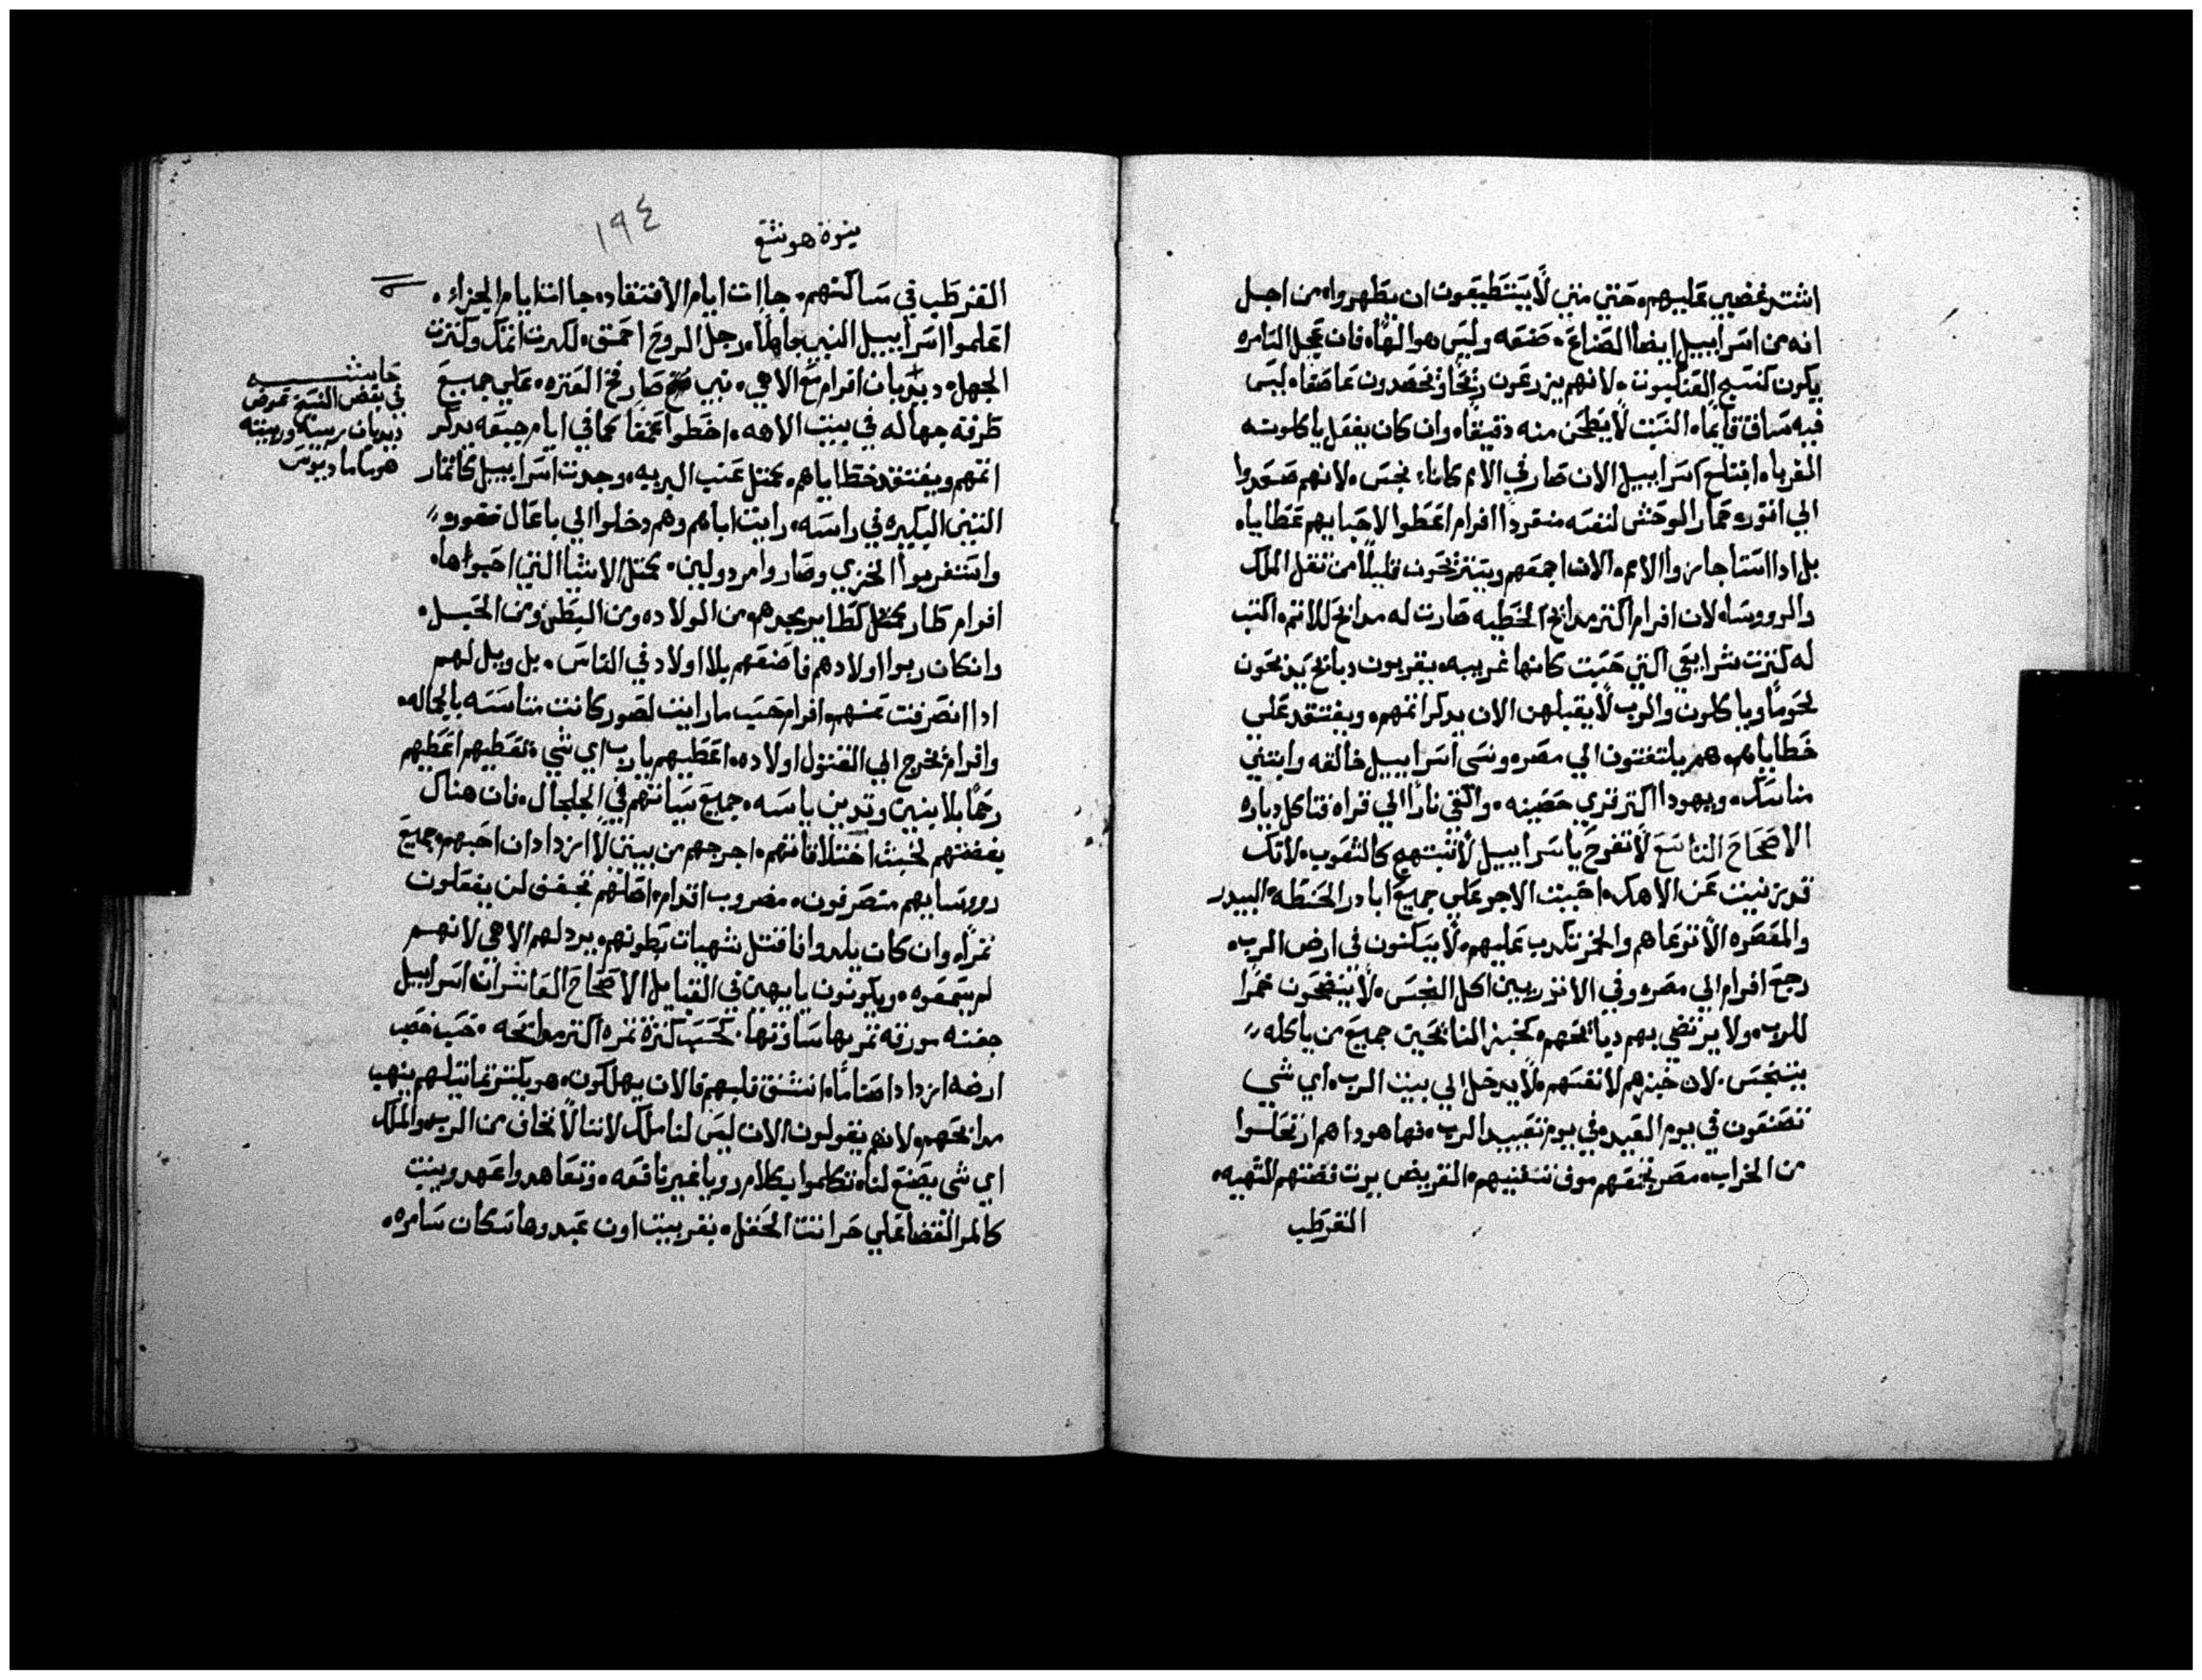 اشتد غضبي عليهم، حتي متي لا يستطيعون ان يطهروا، من اجل
انه من اسراييل ايضا الصناع، صنعه وليس هو الها، فان عجل السامره
يكون كنسج العنكبوت، لانهم يزرعون ريحا ويحصدون عاصفا، ليس
فيه ساق قايما، النبت لا يطحن منه دقيقا، وان كان يفعل ياكلونه
الغربا، ابتلع اسراييل الان صار في الامم كاناء نجس، لانهم صعدوا
الي اتور، حمار الوحش لنفسه منفردا افرام اعطوا لاحبايهم عطايا،
بل ادا استاجروا الامم، الان اجمعهم ويستريحون قليلا من تقل الملك
والرووسا، لان افرام اكتر مدابح الخطيه صارت له مدابح للاتم، اكتب
له كترت شرايعي التي حسبت كانها غريبه، يقربون دبايح يدبحون
لحوما وياكلون والرب لا يقبلهن الان يدكر اتمهم، ويفتقد علي
خطاياهم، هم يلتفتون الي مصر، ونسي اسراييل خالقه وابتني
مناسك، ويهودا اكتر قري حصينه، والقي نارا الي قراه فتاكل دياره
الاصحاح التاسع لا تفرح يا سراييل لا تبتهج كالشعوب، لانك
قد زنيت عن الاهك، احببت الاجر علي جميع ابادر الحنطه، البيدر
والمعصره لا ترعاهم والخمر تكدب عليهم، لا يسكنون في ارض الرب،
رجع افرام الي مصر، وفي الاتوريين اكل النجس، لا ينضحون خمرا
للرب، ولا يرتضي بهم دبايحهم، كخبز النايحين جميع من ياكله
يتنجس، لان خبزهم لانفسهم، لا يدخل الي بيت الرب، اي شي
تصنعون في يوم العيد، في يوم تعييد الرب، فها هودا هم ارتحلوا
من الخراب، مصر تجمعهم موف تستغنيهم، القريض يرت فضتهم الشهيه،
القرطب
نبوة هوشع
١٩٤
القرطب في مساكنهم، جاات ايام الافتقاد، جاات ايام الجزاء،
اعلموا اسراييل النبي جاهلا، رجل الروح احمق، لكترت اتمك وكترت
الجهل، ديدبان افرام مع الاهي، نبي صار فخ العتره، علي جميع
طرقه جهاله في بيت الاهه، اخطوا عمقا كما في ايام جبعه يدكر
اتمهم ويفتقد خطاياهم، كمتل عنب البريه، وجدت اسراييل كاتمار
التين البكيره في راسه، رايت اباهم وهم دخلوا الي باعال فغور
واستغربوا الخزي وصاروا مردولين، كمتل الاشيا التي احبواها،
افرام طار كمتل كطاير مجدهم، من الولاده ومن البطن ومن الحبل،
وان كان ربوا اولادهم فاصنعهم بلا اولاد في الناس، بل ويل لهم
ادا انصرفت عنهم، افرام حسب ما رايت لصور كانت متاسسه بالجماله،
وافرام يخرج الي القتول اولاده، اعطيهم يارب اي شي تعطيهم اعطيهم
رحما بلا بنين وتديين يابسه، جميع سياتهم في الجلجال، فان هناك
بغضتهم لخبث اختلاقاتهم، اخرجهم من بيتي لا ازداد ان احبهم، جميع
رووسايهم متصرفون، مضروب افرام، اصلهم تجفف لن يفعلون
تمرا، وان كان يلدوا فاقتل شهيات بطونهم، يردلهم الاهي لانهم
لم يسمعوه، ويكونون تايهين في القبايل الاصحاح العاشر ان اسراييل
جفنه مورقه تمربها ساوتها، كحسب كترة تمره اكتر مدابحه، حسب خصب
ارضه ازداد اصناما، انشق قلبهم فالان يهلكون، هو يكسر تماتيلهم ينهب
مدابحهم، لانهم يقولون الان ليس لنا ملك لاننا لا نخاف من الرب، والملك
اي شي يصنع لنا، تكلموا بكلام رويا غير نافعه، وتعاهدوا عهد وينبت
كالمر القضا علي حراتت الحقل، بقر بيت اون عبدوها سكان سامره،
حاشيه
في بعض النسخ عوض
ديدبان ربييه وربيته
هوساما ديوس